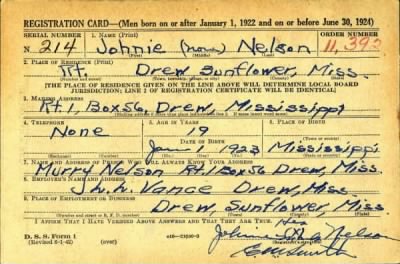 REGISTRATION CARD—(Men born on or after January 1, 1922 and on or before June 30, 1924)
SERIAL NUMBER 1. NAME (Print) ORDER NUMBER
N 214 Johnie (none) Nelson 11,392
(First) (Middle) (Last)
2. PLACE OF RESIDENCE (Print)
Rt. Drew Sunflower Miss.
(Town, township, village, or city) (County) (State)
[THE PLACE OF RESIDENCE GIVEN ON THE LINE ABOVE WILL DETERMINE LOCAL BOARD
JURISDICTION; LINE 2 OF REGISTRATION CERTIFICATE WILL BE IDENTICAL]
3. MAILING ADDRESS
Rt 1, Box 56, Drew, Mississippi
4. TELEPHONE 5. AGE IN YEARS 6. PLACE OF BIRTH
None 19
DATE OF BIRTH
1 1923 Mississippi
7. NAME AND ADDRESS OF PERSON WHO WILL ALWAYS KNOW YOUR ADDRESS
Murry Nelson Rt. 1 Box 56 Drew, Miss.
8. EMPLOYER'S NAME AND ADDRESS
Vance Drew, Miss
9. PLACE OF EMPLOYMENT OR BUSINESS
Drew, Sunflower, Miss.
(Number and street or R. F. D. number) (Town) (County) (State)
I AFFIRM THAT I HAVE VERIFIED ABOVE ANSWERS AND THAT THEY ARE TRUE. His
D. S. S. Form 1 Johnie Nelson
(Revised 6-1-42) (over) Smith